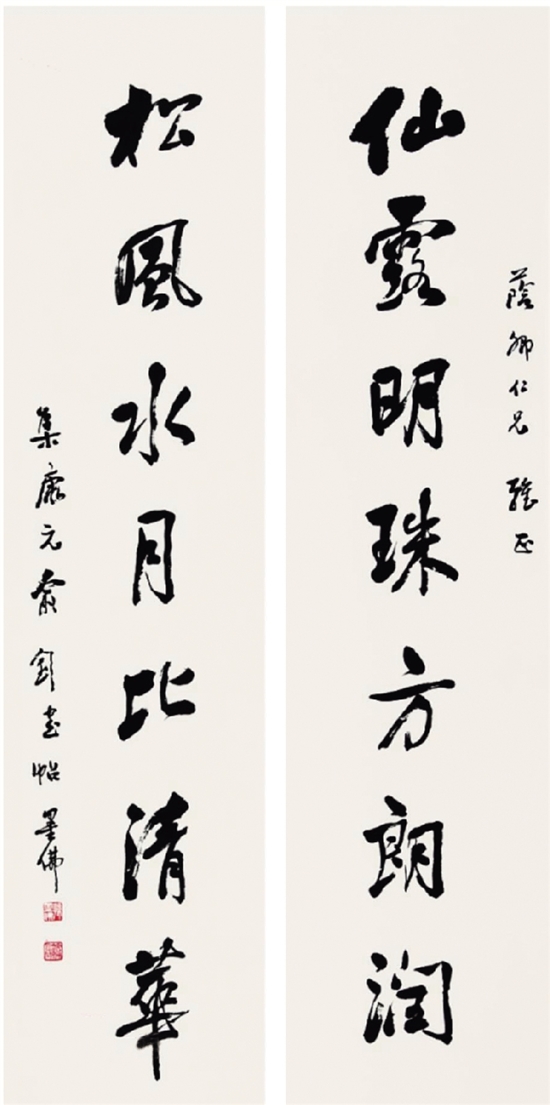 蔭卿仁兄 雅正
仙露明珠方朗潤
松風水月比清華
集 元 書帖 墨佛